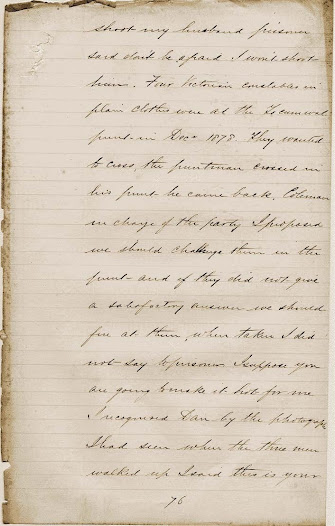 shoot my husband prisoner
said dont be afraid I wont shoot
him. Four Victorian constables in
plain clothes were at the Tocumwal
punt in Decr 1878. They wanted
to cross, the puntman crossed in
his punt he came back. Coleman
in charge of the party I proposed
we should challenge them in the
punt and if they did not give
a satisfactory answer we should
fire at them, when taken I did
not say to prisoner I suppose you
are going to make it hot for me
I recognised Dan by the photograph
I had seen when the three men
walked up I said this is your
76